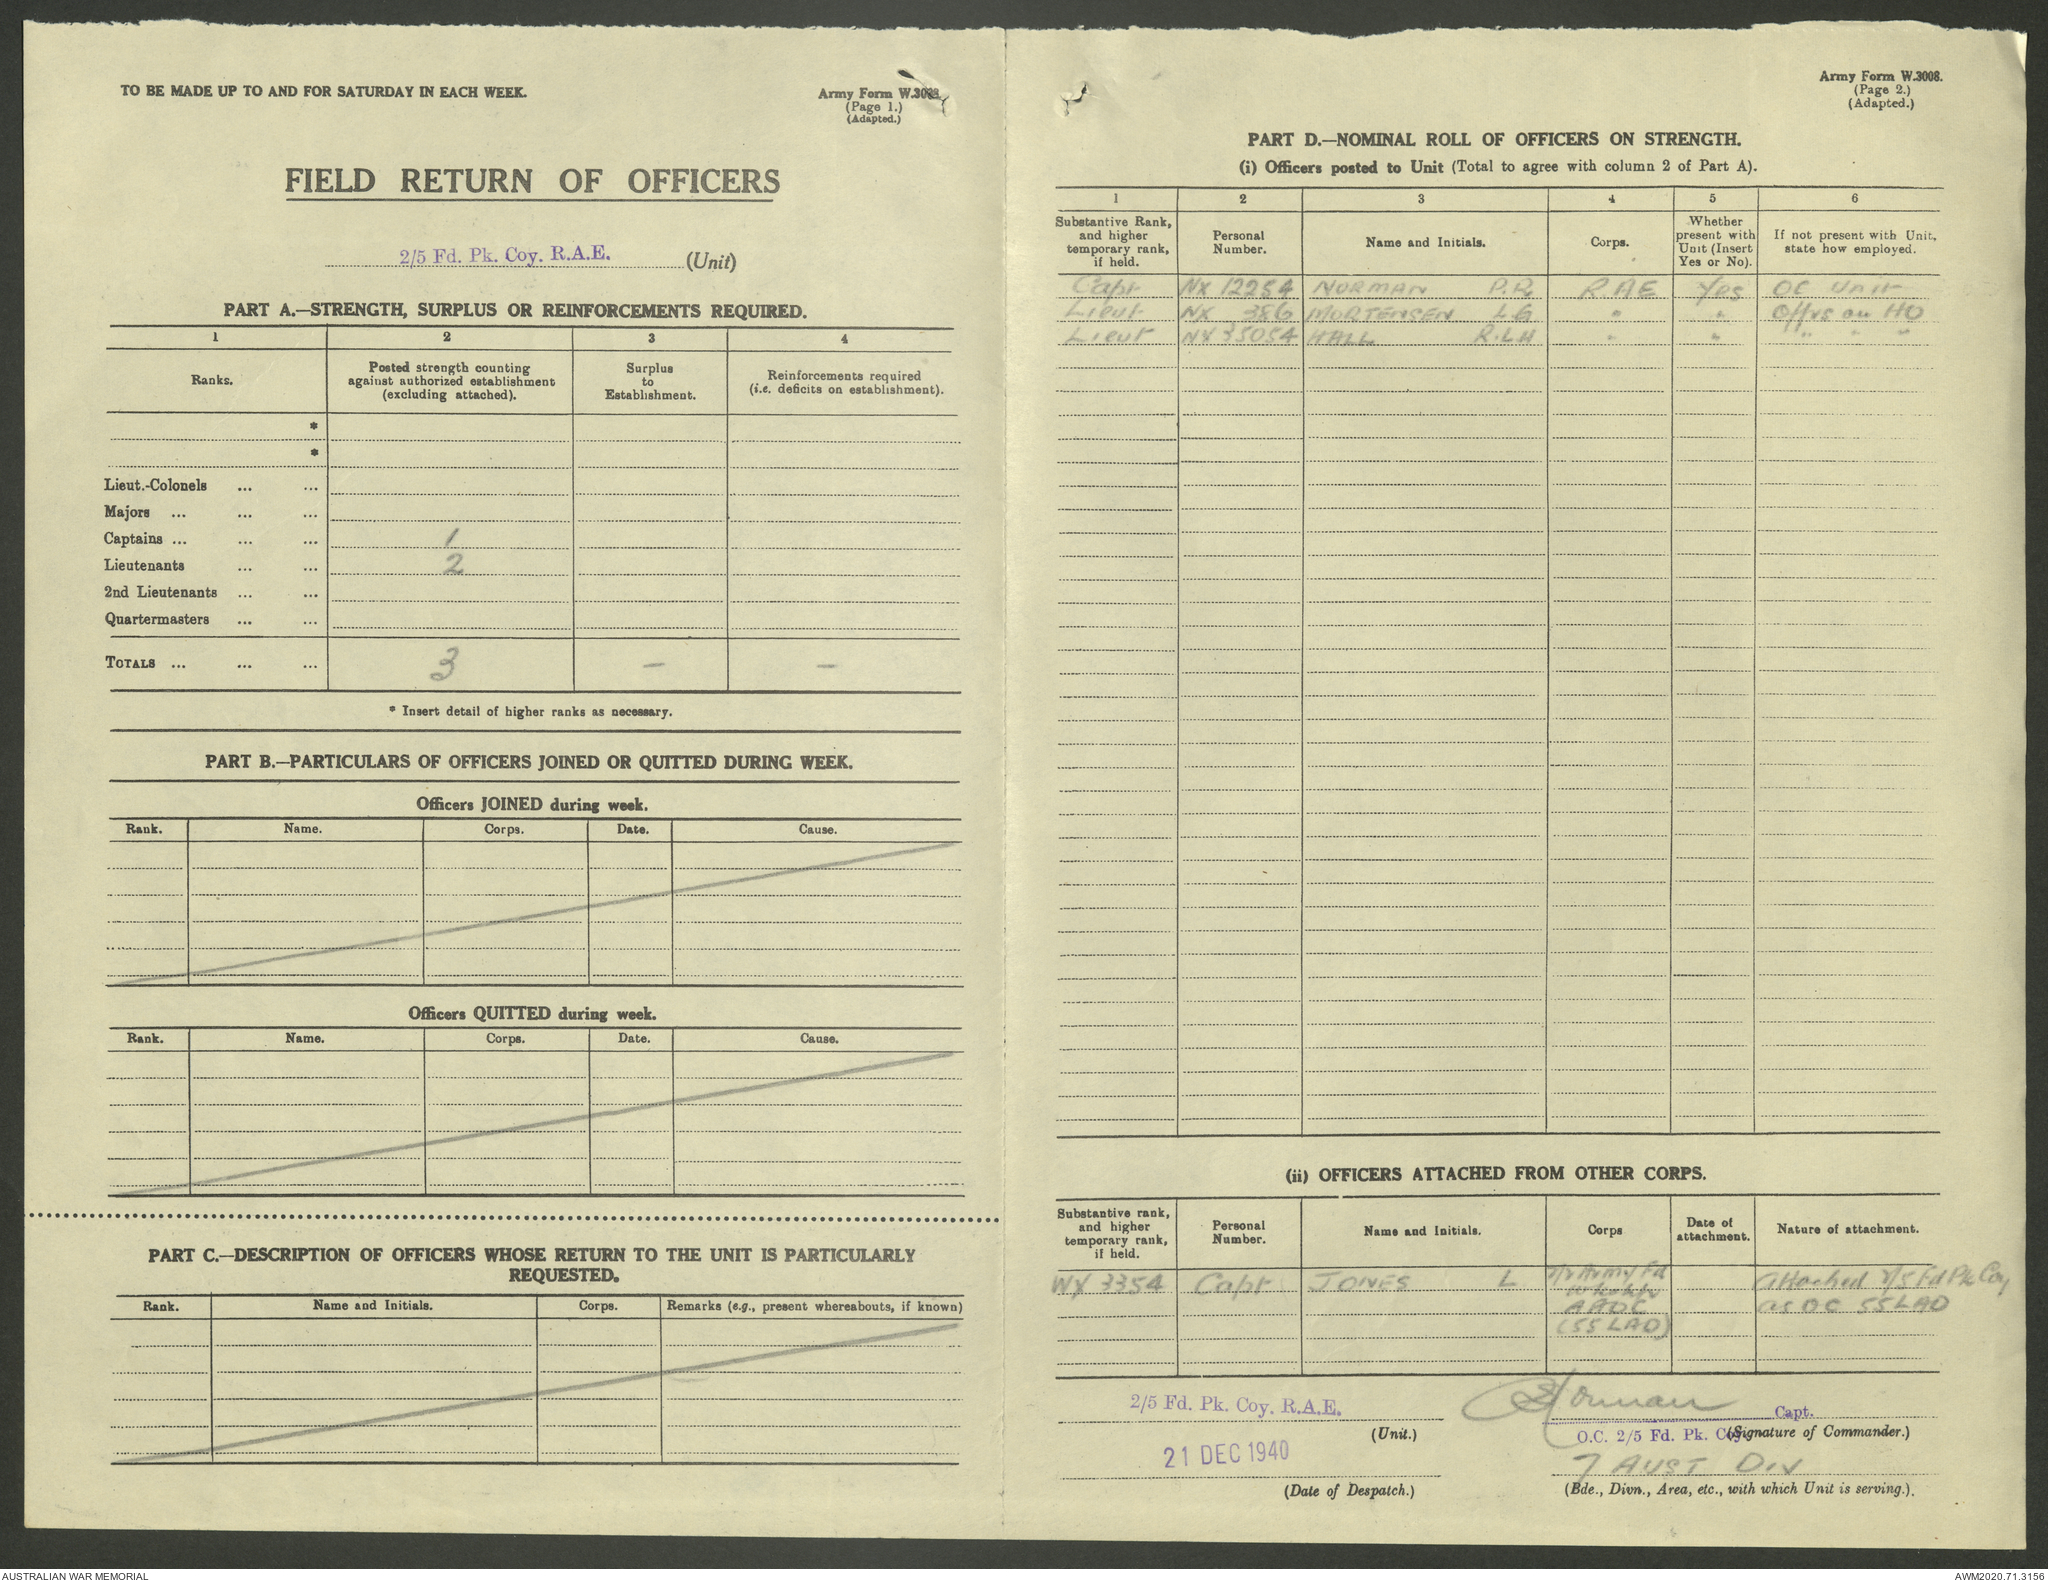 TO BE MADE UP TO AND FOR SATURDAY IN EACH WEEK.
Army Form W.3008.
(Page 1.)
(Adapted.)
FIELD RETURN OF OFFICERS
2/5 Fd. Pk. Coy. R.A.E. (Unit)
PART A.—STRENGTH, SURPLUS OR REINFORCEMENTS REQUIRED.
1 2 3 4
Ranks. Posted strength counting against authorized establishment (excluding attached). Surplus to Establishment. Reinforcements required (i.e. deficits on establishment).
*
*
Lieut.-Colonels ... ...
Majors ... ... ...
Captains ... ... ... 1
Lieutenants ... ... 2
2nd Lieutenants ... ...
Quartermasters ... ...
TOTALS ... ... ... 3 — —
* Insert detail of higher ranks as necessary.
PART B.—PARTICULARS OF OFFICERS JOINED OR QUITTED DURING WEEK.
Officers JOINED during week.
Rank. Name. Corps. Date. Cause.
Officers QUITTED during week.
Rank. Name. Corps. Date. Cause.
PART C.—DESCRIPTION OF OFFICERS WHOSE RETURN TO THE UNIT IS PARTICULARLY
REQUESTED.
Rank. Name and Initials. Corps. Remarks (e.g., present whereabouts, if known)
Army Form W.3008.
(Page 2.)
(Adapted.)
PART D.—NOMINAL ROLL OF OFFICERS ON STRENGTH.
(i) Officers posted to Unit (Total to agree with column 2 of Part A).
1 2 3 4 5 6
Substantive Rank, and higher temporary rank, if held. Personal Number. Name and Initials. Corps. Whether present with Unit (Insert Yes or No). If not present with Unit, state how employed.
Capt NX 12254 NORMAN P.R. RAE Yes OC Unit
Lieut NX 386 MORTENSEN LG " " Offrs on HQ
Lieut NX 35054 HALL R.L.H " " " " "
(ii) OFFICERS ATTACHED FROM OTHER CORPS.
Substantive rank, and higher temporary rank, if held. Personal Number. Name and Initials. Corps Date of attachment. Nature of attachment.
WX 3354 Capt JONES L Army Fd Attached 2/5 Fd Pk Coy
AAOC as OC 55 LAD
(55 LAD)
2/5 Fd. Pk. Coy. R.A.E.
(Unit.)
Norman Capt.
O.C. 2/5 Fd. Pk. Coy.
(Signature of Commander.)
21 DEC 1940
(Date of Despatch.)
7 AUST DIV
(Bde., Divn., Area, etc., with which Unit is serving.).
AUSTRALIAN WAR MEMORIAL
AWM2020.71.3156